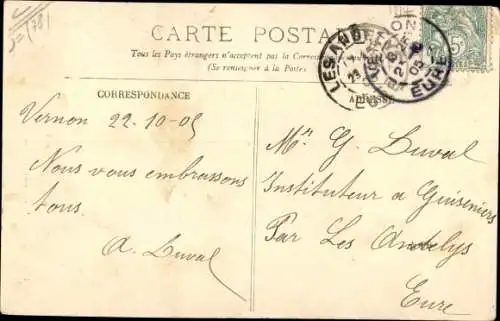 J=1781
CARTE POSTALE
Tous les Pays étrangers n'acceptent pas la Correspondance
(Se renseigner à la Poste)
LES ANDE
VERNON
EURE
CORRESPONDANCE
ADRESSE
Vernon 22-10-05
Nous vous embrassons
tous.
A. Duval
Mr G. Duval
Instituteur à Guiseniers
Par Les Andelys
Eure